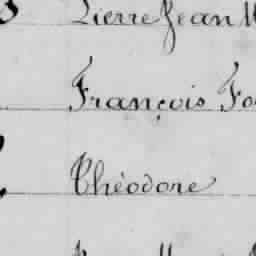 Pierre Jean
François Fo
Théodore